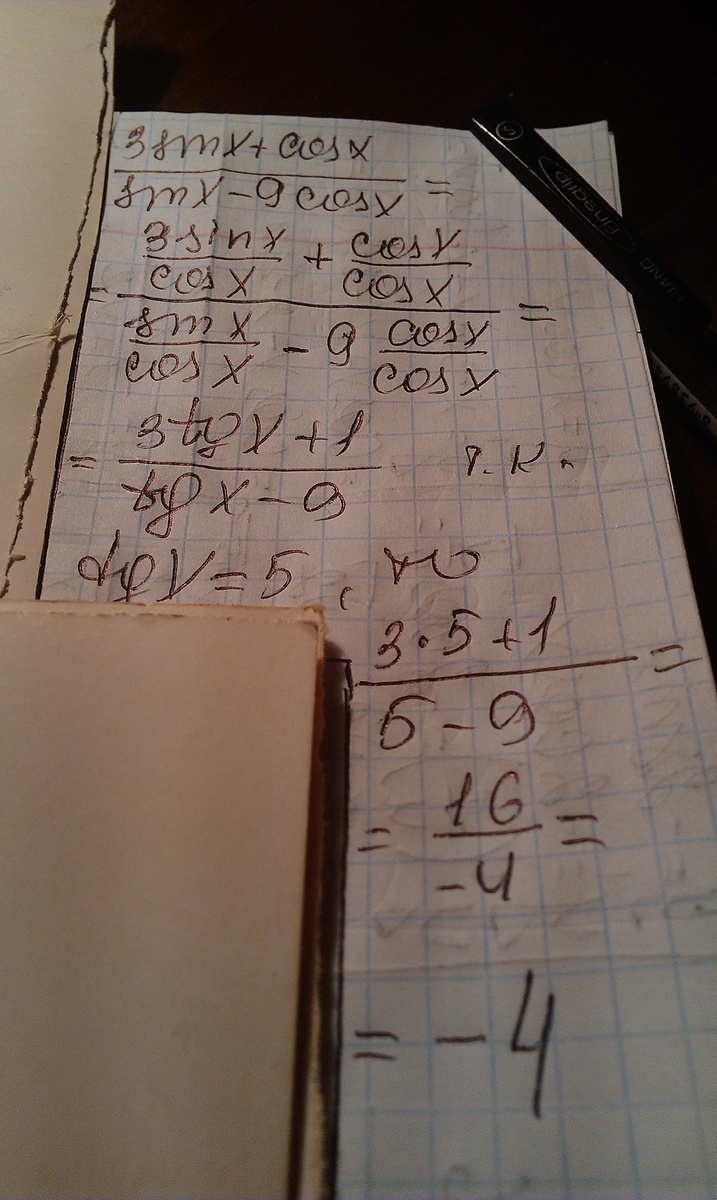 3sinx + cosx
sinx - 9cosx =
= 3sinx/cosx + cosx/cosx
sinx/cosx - 9 cosx/cosx =
= 3tgx + 1
tgx - 9
т.к.
tgx = 5, то
3·5+1
5-9 =
= 16/-4 =
= -4